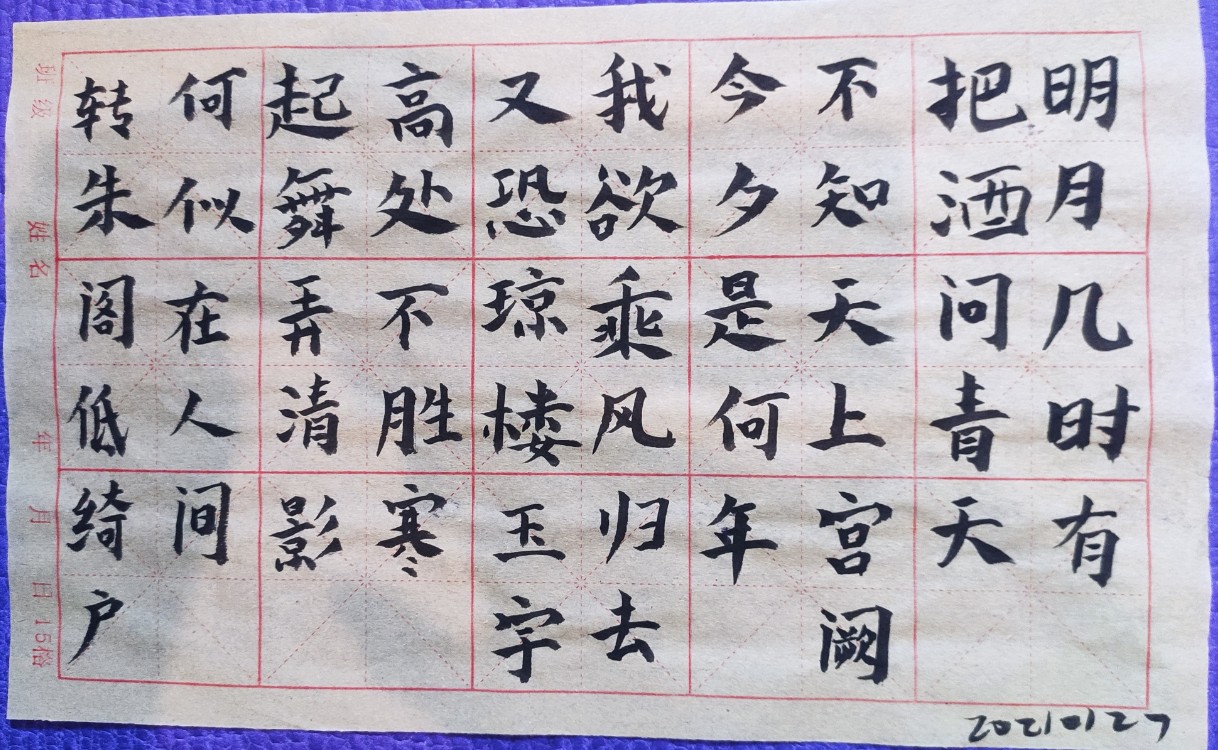 明月几时有
把酒问青天
不知天上宫阙
今夕是何年
我欲乘风归去
又恐琼楼玉宇
高处不胜寒
起舞弄清影
何似在人间
转朱阁低绮户
班级 姓名 年 月 日 15格
20210127